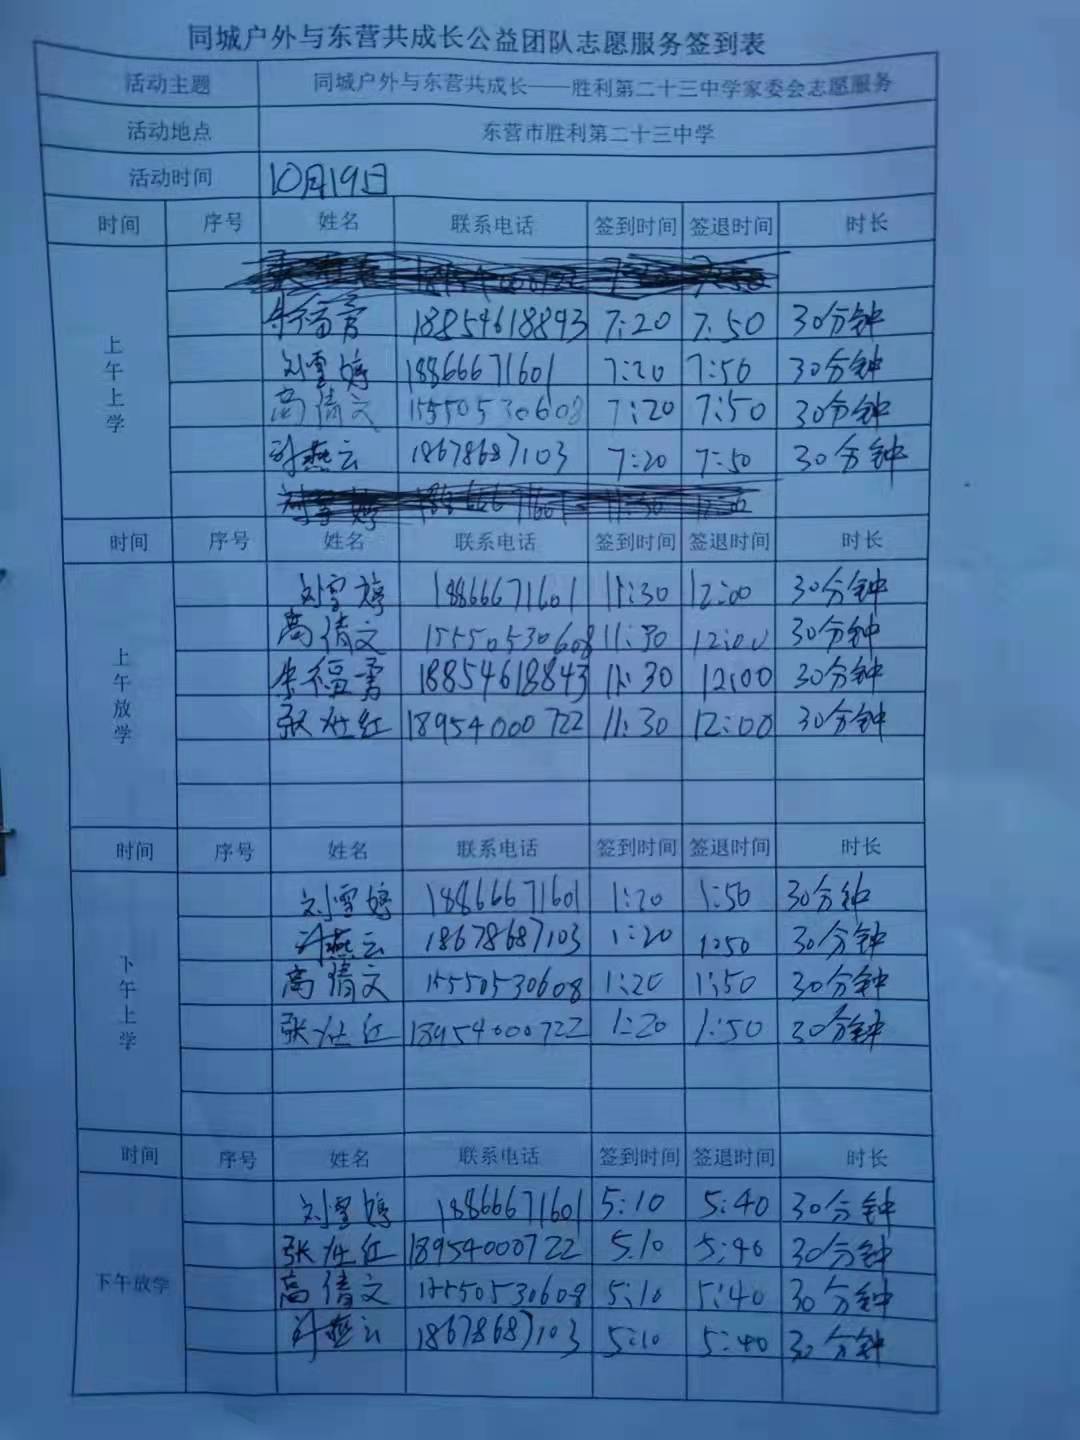 同城户外与东营共成长公益团队志愿服务签到表
活动主题 同城户外与东营共成长——胜利第二十三中学家委会志愿服务
活动地点 东营市胜利第二十三中学
活动时间 10月19日
时间 序号 姓名 联系电话 签到时间 签退时间 时长
上午上学
朱福勇 18854618843 7:20 7:50 30分钟
刘雪婷 18866671601 7:20 7:50 30分钟
高倩文 15550530608 7:20 7:50 30分钟
燕云 18678687103 7:20 7:50 30分钟
时间 序号 姓名 联系电话 签到时间 签退时间 时长
上午放学
刘雪婷 18866671601 11:30 12:00 30分钟
高倩文 15550530608 11:30 12:00 30分钟
朱福勇 18854618843 11:30 12:00 30分钟
张红 18954000722 11:30 12:00 30分钟
时间 序号 姓名 联系电话 签到时间 签退时间 时长
下午上学
刘雪婷 18866671601 1:20 1:50 30分钟
燕云 18678687103 1:20 1:50 30分钟
高倩文 15550530608 1:20 1:50 30分钟
张红 18954000722 1:20 1:50 30分钟
时间 序号 姓名 联系电话 签到时间 签退时间 时长
下午放学
刘雪婷 18866671601 5:10 5:40 30分钟
张红 18954000722 5:10 5:40 30分钟
高倩文 15550530608 5:10 5:40 30分钟
燕云 18678687103 5:10 5:40 30分钟